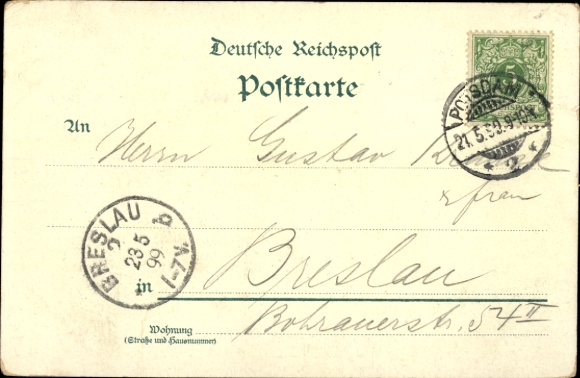 Deutsche Reichspost
Postkarte
5
POTSDAM
21.5.99.9-10V.
* 2 *
An
Herrn Gustav
& frau
BRESLAU
2 b
23.5
99
1-7V.
in
Breslau
Bohrauerstr. 54 II
Wohnung
(Straße und Hausnummer)